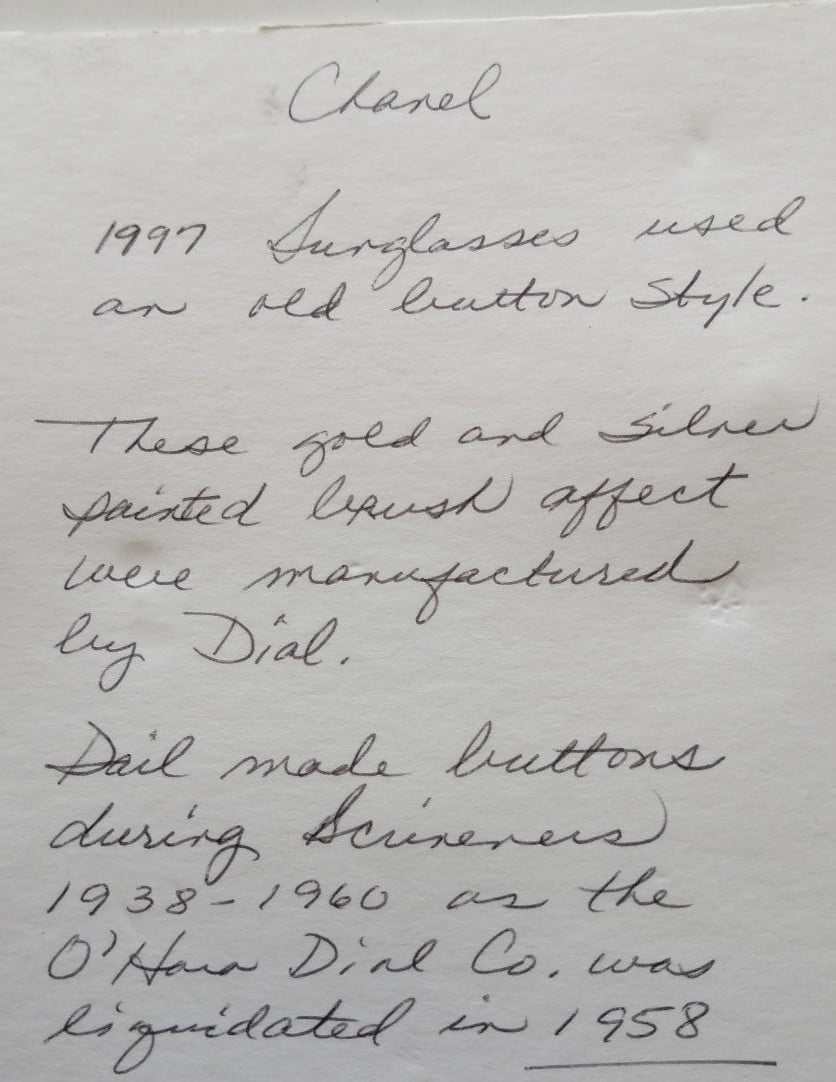 Chanel
1997 Sunglasses used
an old button style.
These gold and silver
painted brush affect
were manufactured
by Dial.
Dail made buttons
during
1938-1960 as the
O'Hara Dial Co. was
liquidated in 1958